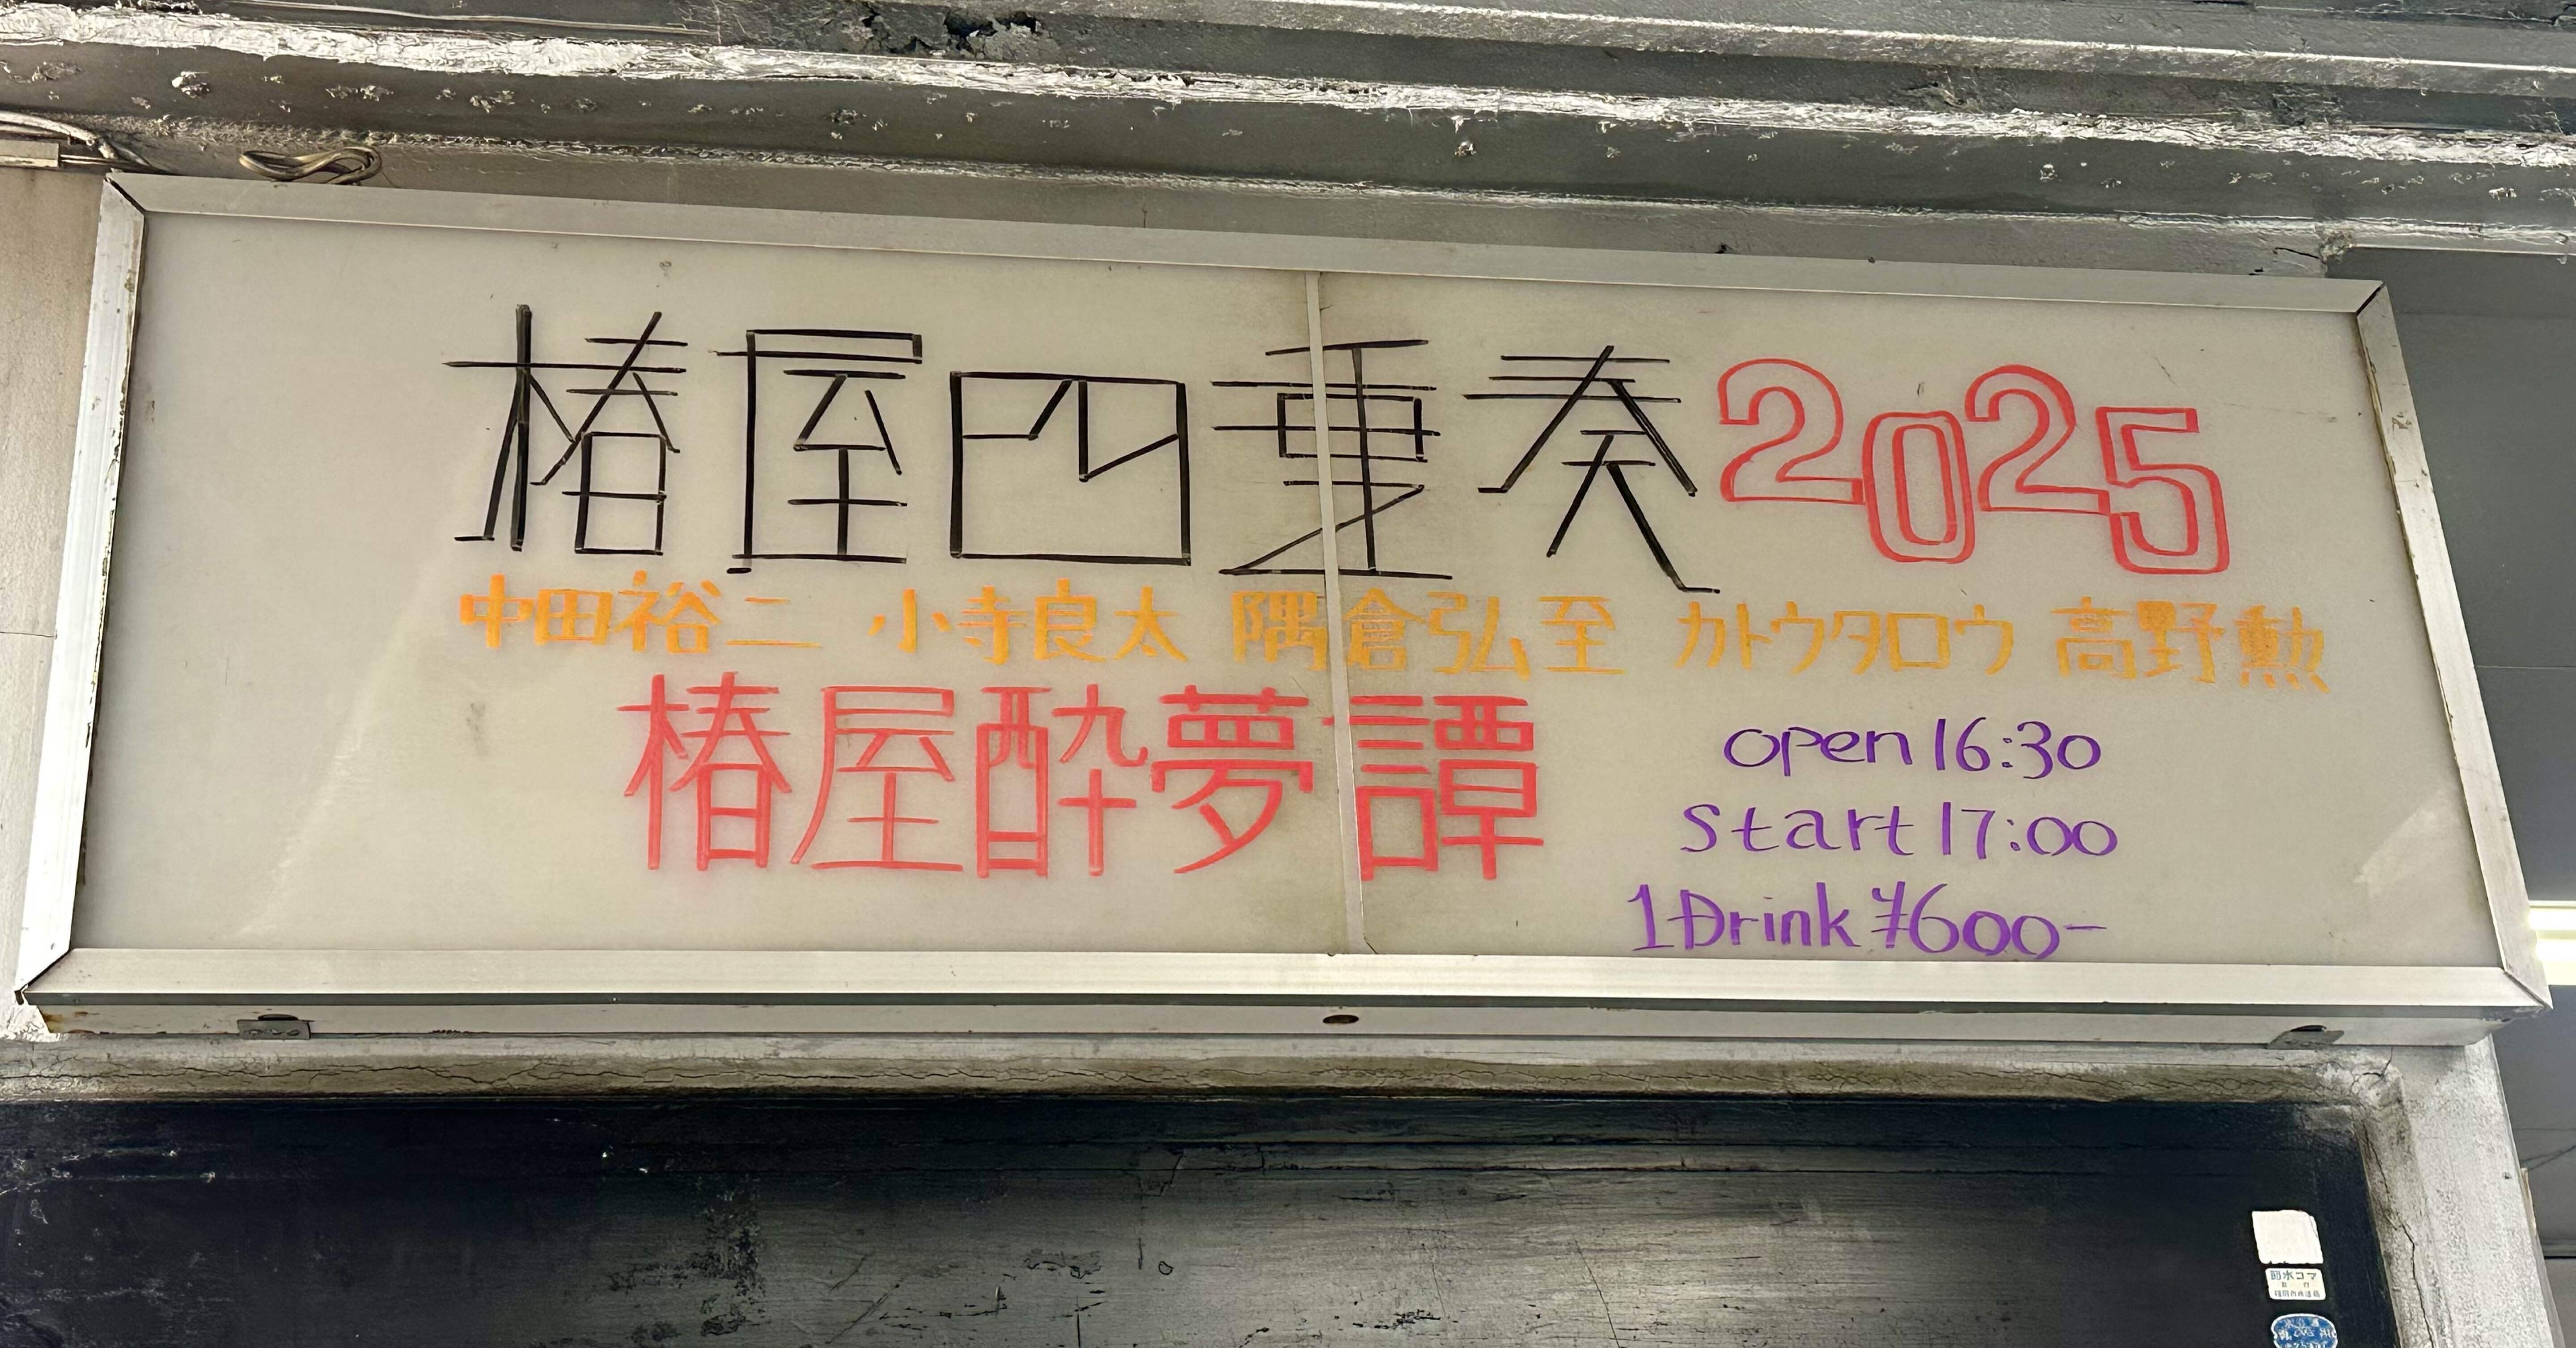 椿屋四重奏2025
中田裕二 小寺良太 隅倉弘至 カトウタロウ 高野勲
椿屋酔夢譚
open 16:30
start 17:00
1Drink ¥600-
節水コマ